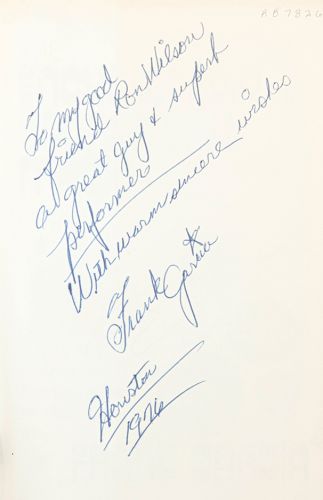 AB782G
To my good
friend Ron Wilson
a great guy & superb
performer
With warm sincere wishes
Frank Garcia
Houston
1976